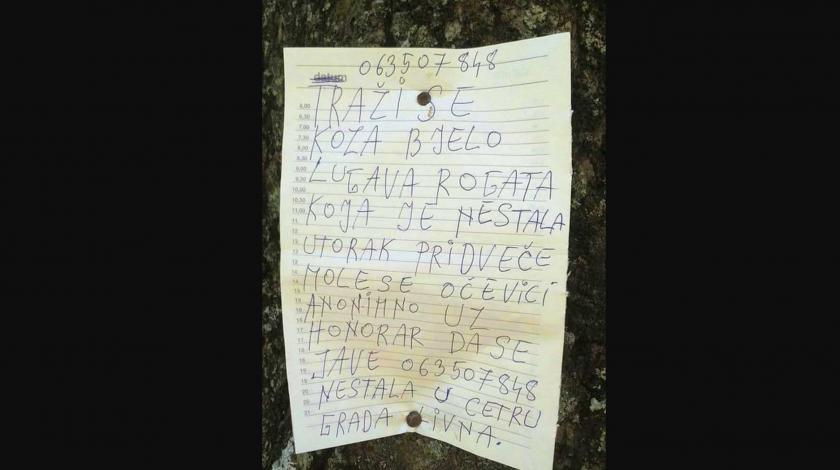 063507848
datum
TRAŽI SE
KOZA BJELO
LUGAVA ROGATA
KOJA JE NESTALA
UTORAK PRIDVEČE
MOLE SE OČEVICI
ANONIMNO UZ
HONORAR DA SE
JAVE 063507848
NESTALA U CETRU
GRADA LIVNA.